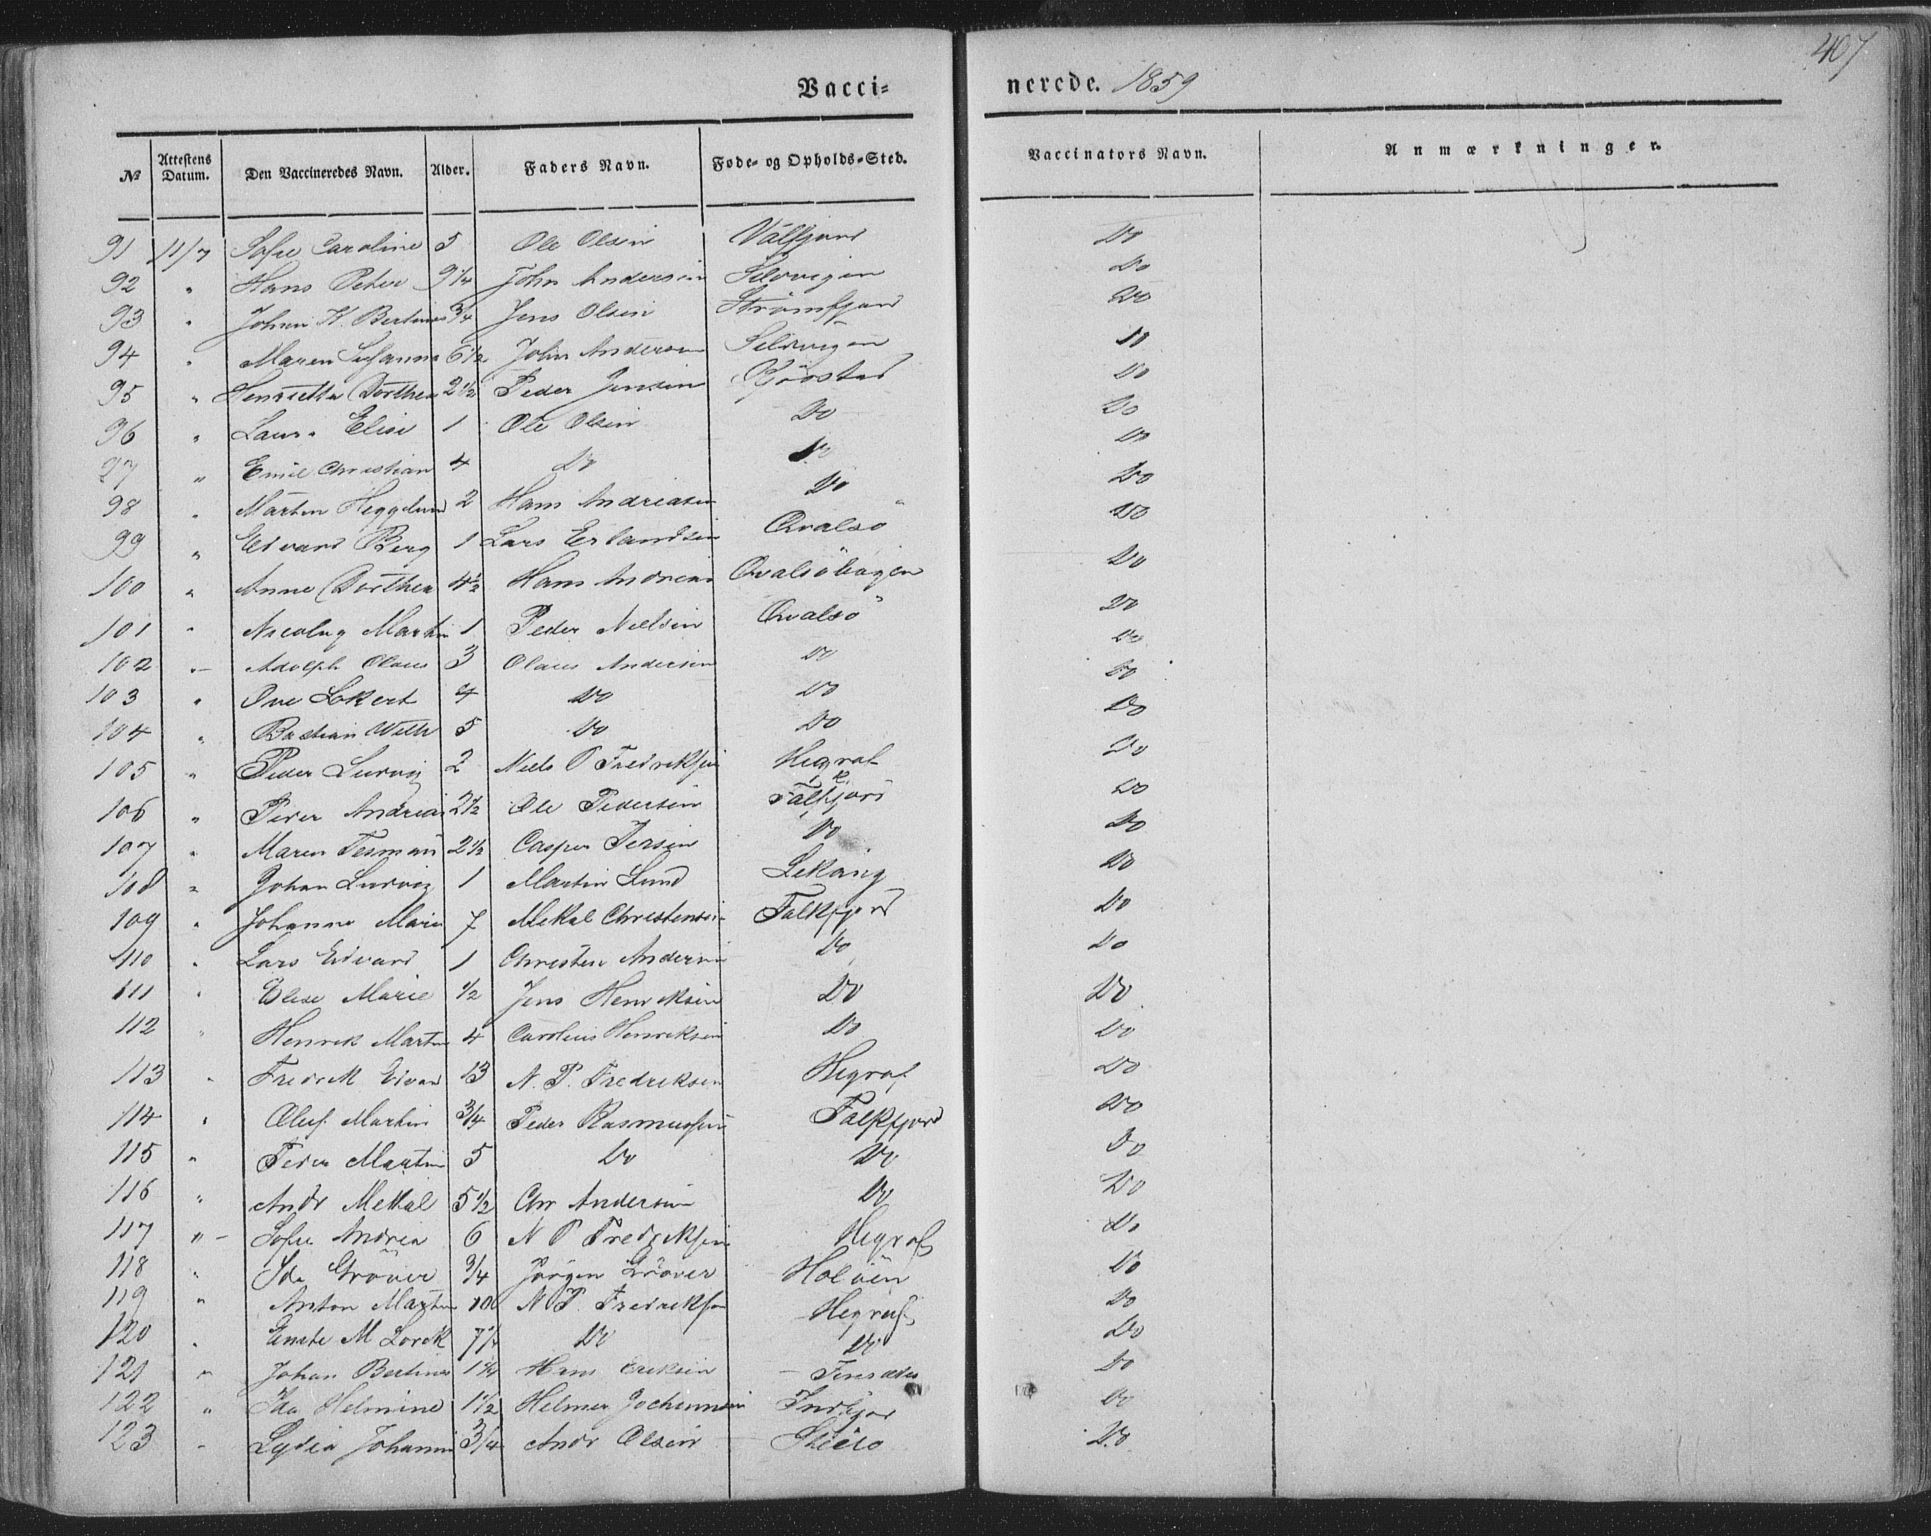 407
Vacci- nerede. 1859
№ Attestens Datum. Den Vaccineredes Navn. Alder. Faders Navn. Føde- og Opholds-Sted. Vaccinators Navn. Anmærkninger.
91 11/7 Sofie Caroline 5 Ole Olsen Valfjord Do
92 " Hans Peter 9 1/4 John Andersen Selvvigen Do
93 " Johan K. Bertinus 3/4 Jens Olsen Strømfjord Do
94 " Maren Susanna 6 1/2 John Andersen Selvvigen Do
95 " Henrietta Dorthea 2 1/2 Peder Jensen Do
96 " Laura Elise 1 Ole Olsen Do Do
97 " Emil Christian 4 Do Do Do
98 " Martin Heggelund 2 Hans Andreasen Do Do
99 " Edvard Berg 1 Lars Erlandsen Qvalsö Do
100 " Anne Dorthea 4 1/2 Hans Andreas Do
101 " Nicolay Martin 1 Peder Nielsen Qvalsö Do
102 " Adolph Olaus 3 Olaus Andersen Do Do
103 " Ove Lokert 4 Do Do Do
104 " Bastian Wilh 5 Do Do Do
105 " Peder Ludvig 2 Niels P Fredriksen Hegraf Do
106 " Peder Andreas 2 1/2 Ole Pedersen Falkfjord Do
107 " Maren 2 1/2 Casper Do Do
108 " Johan Ludvig 1 Martin Lund Lekang Do
109 " Johanne Marie 7 Mekal Christensen Falkfjord Do
110 " Lars Edvard 1 Christen Andersen Do Do
111 " Elise Marie 1/2 Jens Henriksen Do Do
112 " Henrik Martin 4 Carolius Henriksen Do Do
113 " Fredrik Edvard 13 N. P. Fredriksen Hegraf Do
114 " Oluf Martin 3/4 Peder Rasmussen Falkfjord Do
115 " Peder Martin 5 Do Do Do
116 " Andr Mekal 5 1/2 Chr Andersen Do Do
117 " Sofie Andrea 6 N P Fredriksen Hegraf Do
118 " Ida Gröver 3/4 Jørgen Gröver Holöen Do
119 " Anton Martin 10 N. P. Fredriksen Hegraf Do
120 " M Lorck Do Do Do
121 " Johan Bertinus Hans Eriksen Do
122 " Ida Helmine 1 1/2 Helmer Jochumsen Indfjord Do
123 " Lydia Johanne 3/4 Andr Olsen Do